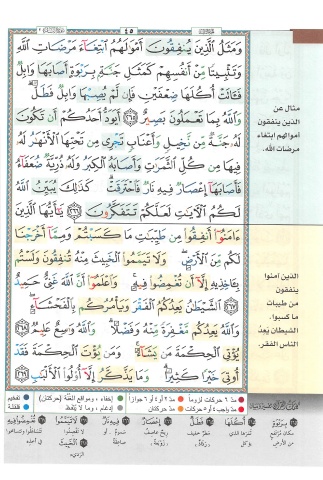 ٤٥
وَمَثَلُ ٱلَّذِينَ يُنفِقُونَ أَمْوَٰلَهُمُ ٱبْتِغَآءَ مَرْضَاتِ ٱللَّهِ
وَتَثْبِيتًا مِّنْ أَنفُسِهِمْ كَمَثَلِ جَنَّةٍۭ بِرَبْوَةٍ أَصَابَهَا وَابِلٌ
فَـَٔاتَتْ أُكُلَهَا ضِعْفَيْنِ فَإِن لَّمْ يُصِبْهَا وَابِلٌ فَطَلٌّ
وَٱللَّهُ بِمَا تَعْمَلُونَ بَصِيرٌ ٢٦٥ أَيَوَدُّ أَحَدُكُمْ أَن تَكُونَ
لَهُۥ جَنَّةٌ مِّن نَّخِيلٍ وَأَعْنَابٍ تَجْرِى مِن تَحْتِهَا ٱلْأَنْهَٰرُ لَهُۥ
فِيهَا مِن كُلِّ ٱلثَّمَرَٰتِ وَأَصَابَهُ ٱلْكِبَرُ وَلَهُۥ ذُرِّيَّةٌ ضُعَفَآءُ
فَأَصَابَهَآ إِعْصَارٌ فِيهِ نَارٌ فَٱحْتَرَقَتْ كَذَٰلِكَ يُبَيِّنُ ٱللَّهُ
لَكُمُ ٱلْـَٔايَٰتِ لَعَلَّكُمْ تَتَفَكَّرُونَ ٢٦٦ يَٰٓأَيُّهَا ٱلَّذِينَ
ءَامَنُوٓا۟ أَنفِقُوا۟ مِن طَيِّبَٰتِ مَا كَسَبْتُمْ وَمِمَّآ أَخْرَجْنَا
لَكُم مِّنَ ٱلْأَرْضِ وَلَا تَيَمَّمُوا۟ ٱلْخَبِيثَ مِنْهُ تُنفِقُونَ وَلَسْتُم
بِـَٔاخِذِيهِ إِلَّآ أَن تُغْمِضُوا۟ فِيهِ وَٱعْلَمُوٓا۟ أَنَّ ٱللَّهَ غَنِىٌّ حَمِيدٌ
٢٦٧ ٱلشَّيْطَٰنُ يَعِدُكُمُ ٱلْفَقْرَ وَيَأْمُرُكُم بِٱلْفَحْشَآءِ
وَٱللَّهُ يَعِدُكُم مَّغْفِرَةً مِّنْهُ وَفَضْلًا وَٱللَّهُ وَٰسِعٌ عَلِيمٌ ٢٦٨
يُؤْتِى ٱلْحِكْمَةَ مَن يَشَآءُ وَمَن يُؤْتَ ٱلْحِكْمَةَ فَقَدْ
أُوتِىَ خَيْرًا كَثِيرًا وَمَا يَذَّكَّرُ إِلَّآ أُو۟لُوا۟ ٱلْأَلْبَٰبِ ٢٦٩
مثال عن
الذين ينفقون
أموالهم ابتغاء
مرضات الله.
الذين آمنوا
ينفقون
من طيبات
ما كسبوا.
الشيطان يعدُ
الناس الفقر.
مدّ ٦ حركات لزوماً
مدّ ٢ أو ٤ أو ٦ جوازاً
إخفاء، ومواقع الغُنَّة (حركتان)
تفخيم
مدّ واجب ٤ أو ٥ حركات
مدّ حركتان
إدغام، وما لا يُلفَظ
قلقلة